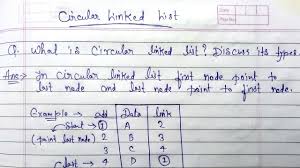 Circular Linked List
Q. What is Circular linked list? Discuss its types
Ans → In Circular linked list first node point to
last node and last node point to first node.
Example → add Data link
Start → 1 A 2
(point last node) 2 B 3
3 C 4
Last → 4 D 1